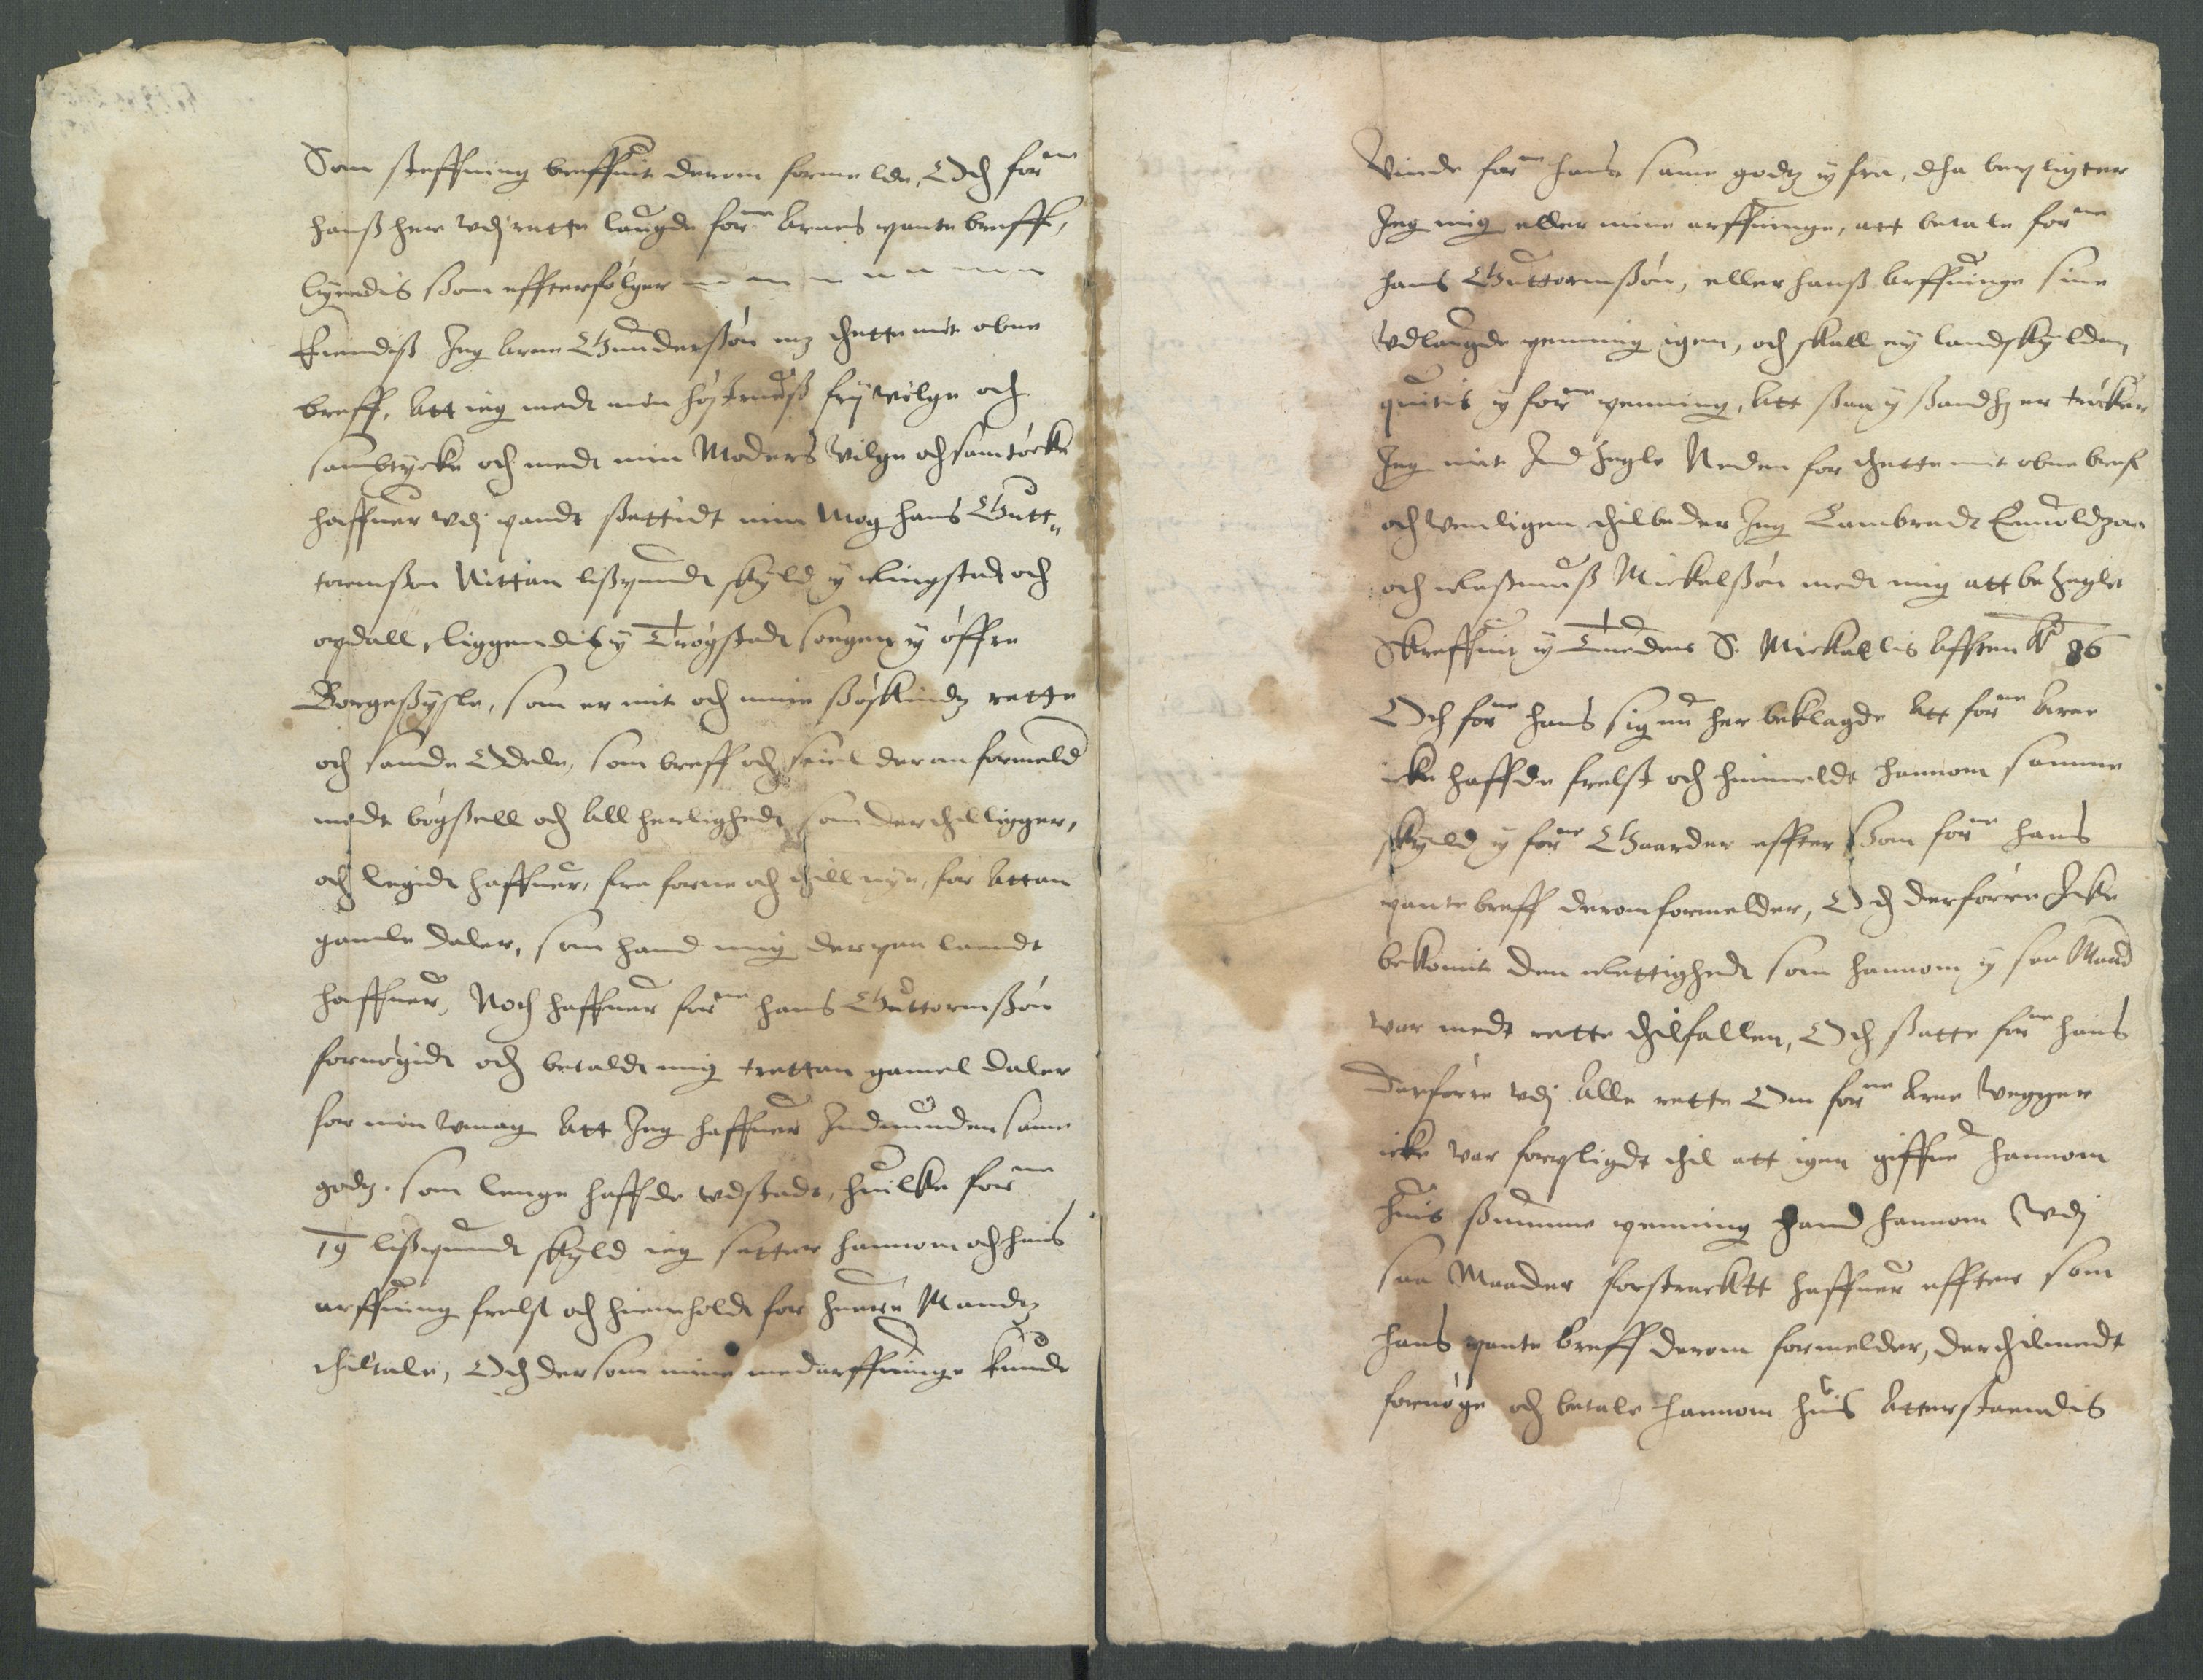 Som steffning breffuit derom formelde, Och forne
hanß her vdj rette laugde forne Arnes pante breff,
lyendis som effterfølger
Kiendiß Jeg Arne Gunderssøn mz thette mit obne
breff, Att ieg medt min høstruß frij vilge och
sambtycke och medt min Moders vilge och samtøcke
haffuer vdj pandt ssattidt min Mog Hans Gutt„
tormsen Nittan lißpundt skyld y Ringstadt och
opdall, liggendis y Trøgstadt sogen y øffre
Borgesyßle, som er mit och mine ssøskindz rette
och sande Odele, som breff och seiel derom formeld
medt bøgssell och All herlighedt som der thilligger,
och legidt haffuer, fra forne och thill nye, for Attan
gamle daler, som hand mig derpaa laandt
haffuer, Noch haffuer forne Hans Guttormssøn
fornøgidt och betaldt mig trettan gamel daler
for min vmag Att Jeg haffuer Indvunden same
godz. som lenge haffde vdstadt, huilke forne
19 lißpundt skyld ieg setter hannom och hans
arffuing frelst och hiemholdt for huer Mandz
thiltale, Och der som mine medarffuinge kunde
Vinde forne hans same godz y fra, tha beplígter
Jeg mig eller mine arffuinge, att betale forne
hans Guttormssøn, eller hanß Arffuinge sine
vdlaugde penning igen, och skall ey landskylden
quitis y forne penning, Att ssaa y ssandhz er trøcker
Jeg mit Indzegle Neden for thette mit obne breff
och venligen thilbeder Jeg Lambredt Enuoldzøn
och Rassmuß Mickelssøn medt mig att bezegle
Skreffuit y S. Mickallis Afften Ao 86
Och forne hans sig nu her beklagde Att forne Arne
icke haffde frelst och hiimeldt hannom samme
skyld y forne Gaarder effter ssom forne hans
pante breff derom formelder, Och derforre Icke
bekomit den Rettighedt som hannom y saa Maad
var medt rette thilfallen, Och ssatte forne hans
derforre vdj Alle rette Om forne Arne Vegger
icke var forpligdt thil att igen giffue hannom
huis ssumme penning hand hannom vdj
saa Maader forstracktt haffuer effter som
hans pante breff derom formelder, der thilmedt
fornøge och betale hannom huis Atterstaendis